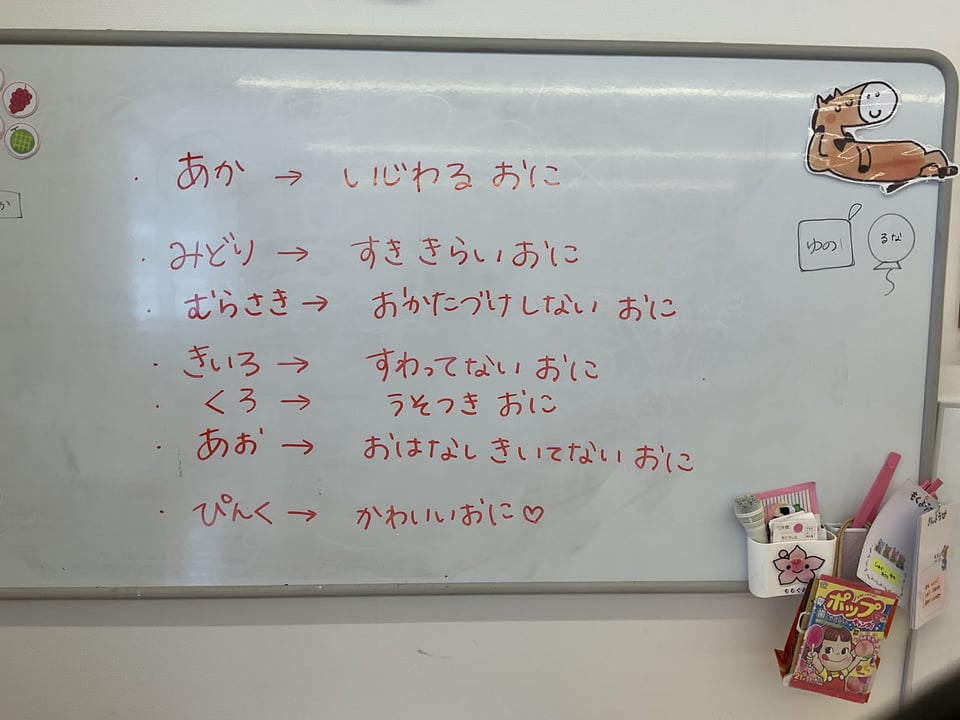 ・あか → いじわる おに
・みどり → すききらい おに
・むらさき → おかたづけしない おに
・きいろ → すわってない おに
・くろ → うそつき おに
・あお → おはなしきいてない おに
・ぴんく → かわいいおに♡
か
ゆの
るな
ポップ
キャンディ